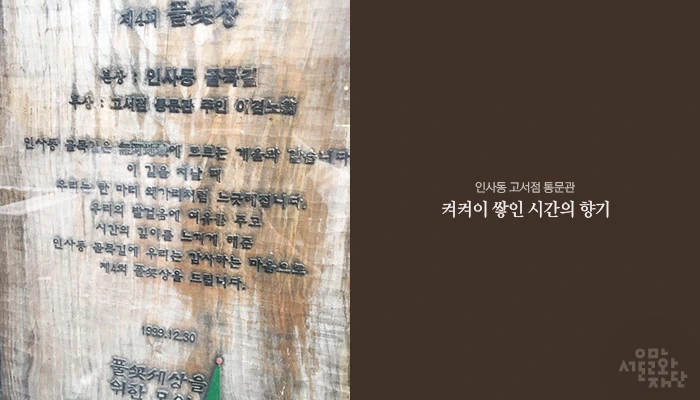 제4회 풀꽃상
본상 : 인사동 골목길
부상 : 고서점 통문관 주인 이겸노翁
인사동 골목길은 에 흐르는 개울과 같습니다
이 길을 지날 때
우리는 한 마리 왜가리처럼 느긋해집니다.
우리의 발걸음에 여유를 주고
시간의 깊이를 느끼게 해준
인사동 골목길에 우리는 감사하는 마음으로
제4회 풀꽃상을 드립니다.
1999.12.30
풀꽃세상을
위한
인사동 고서점 통문관
켜켜이 쌓인 시간의 향기
우리문화와